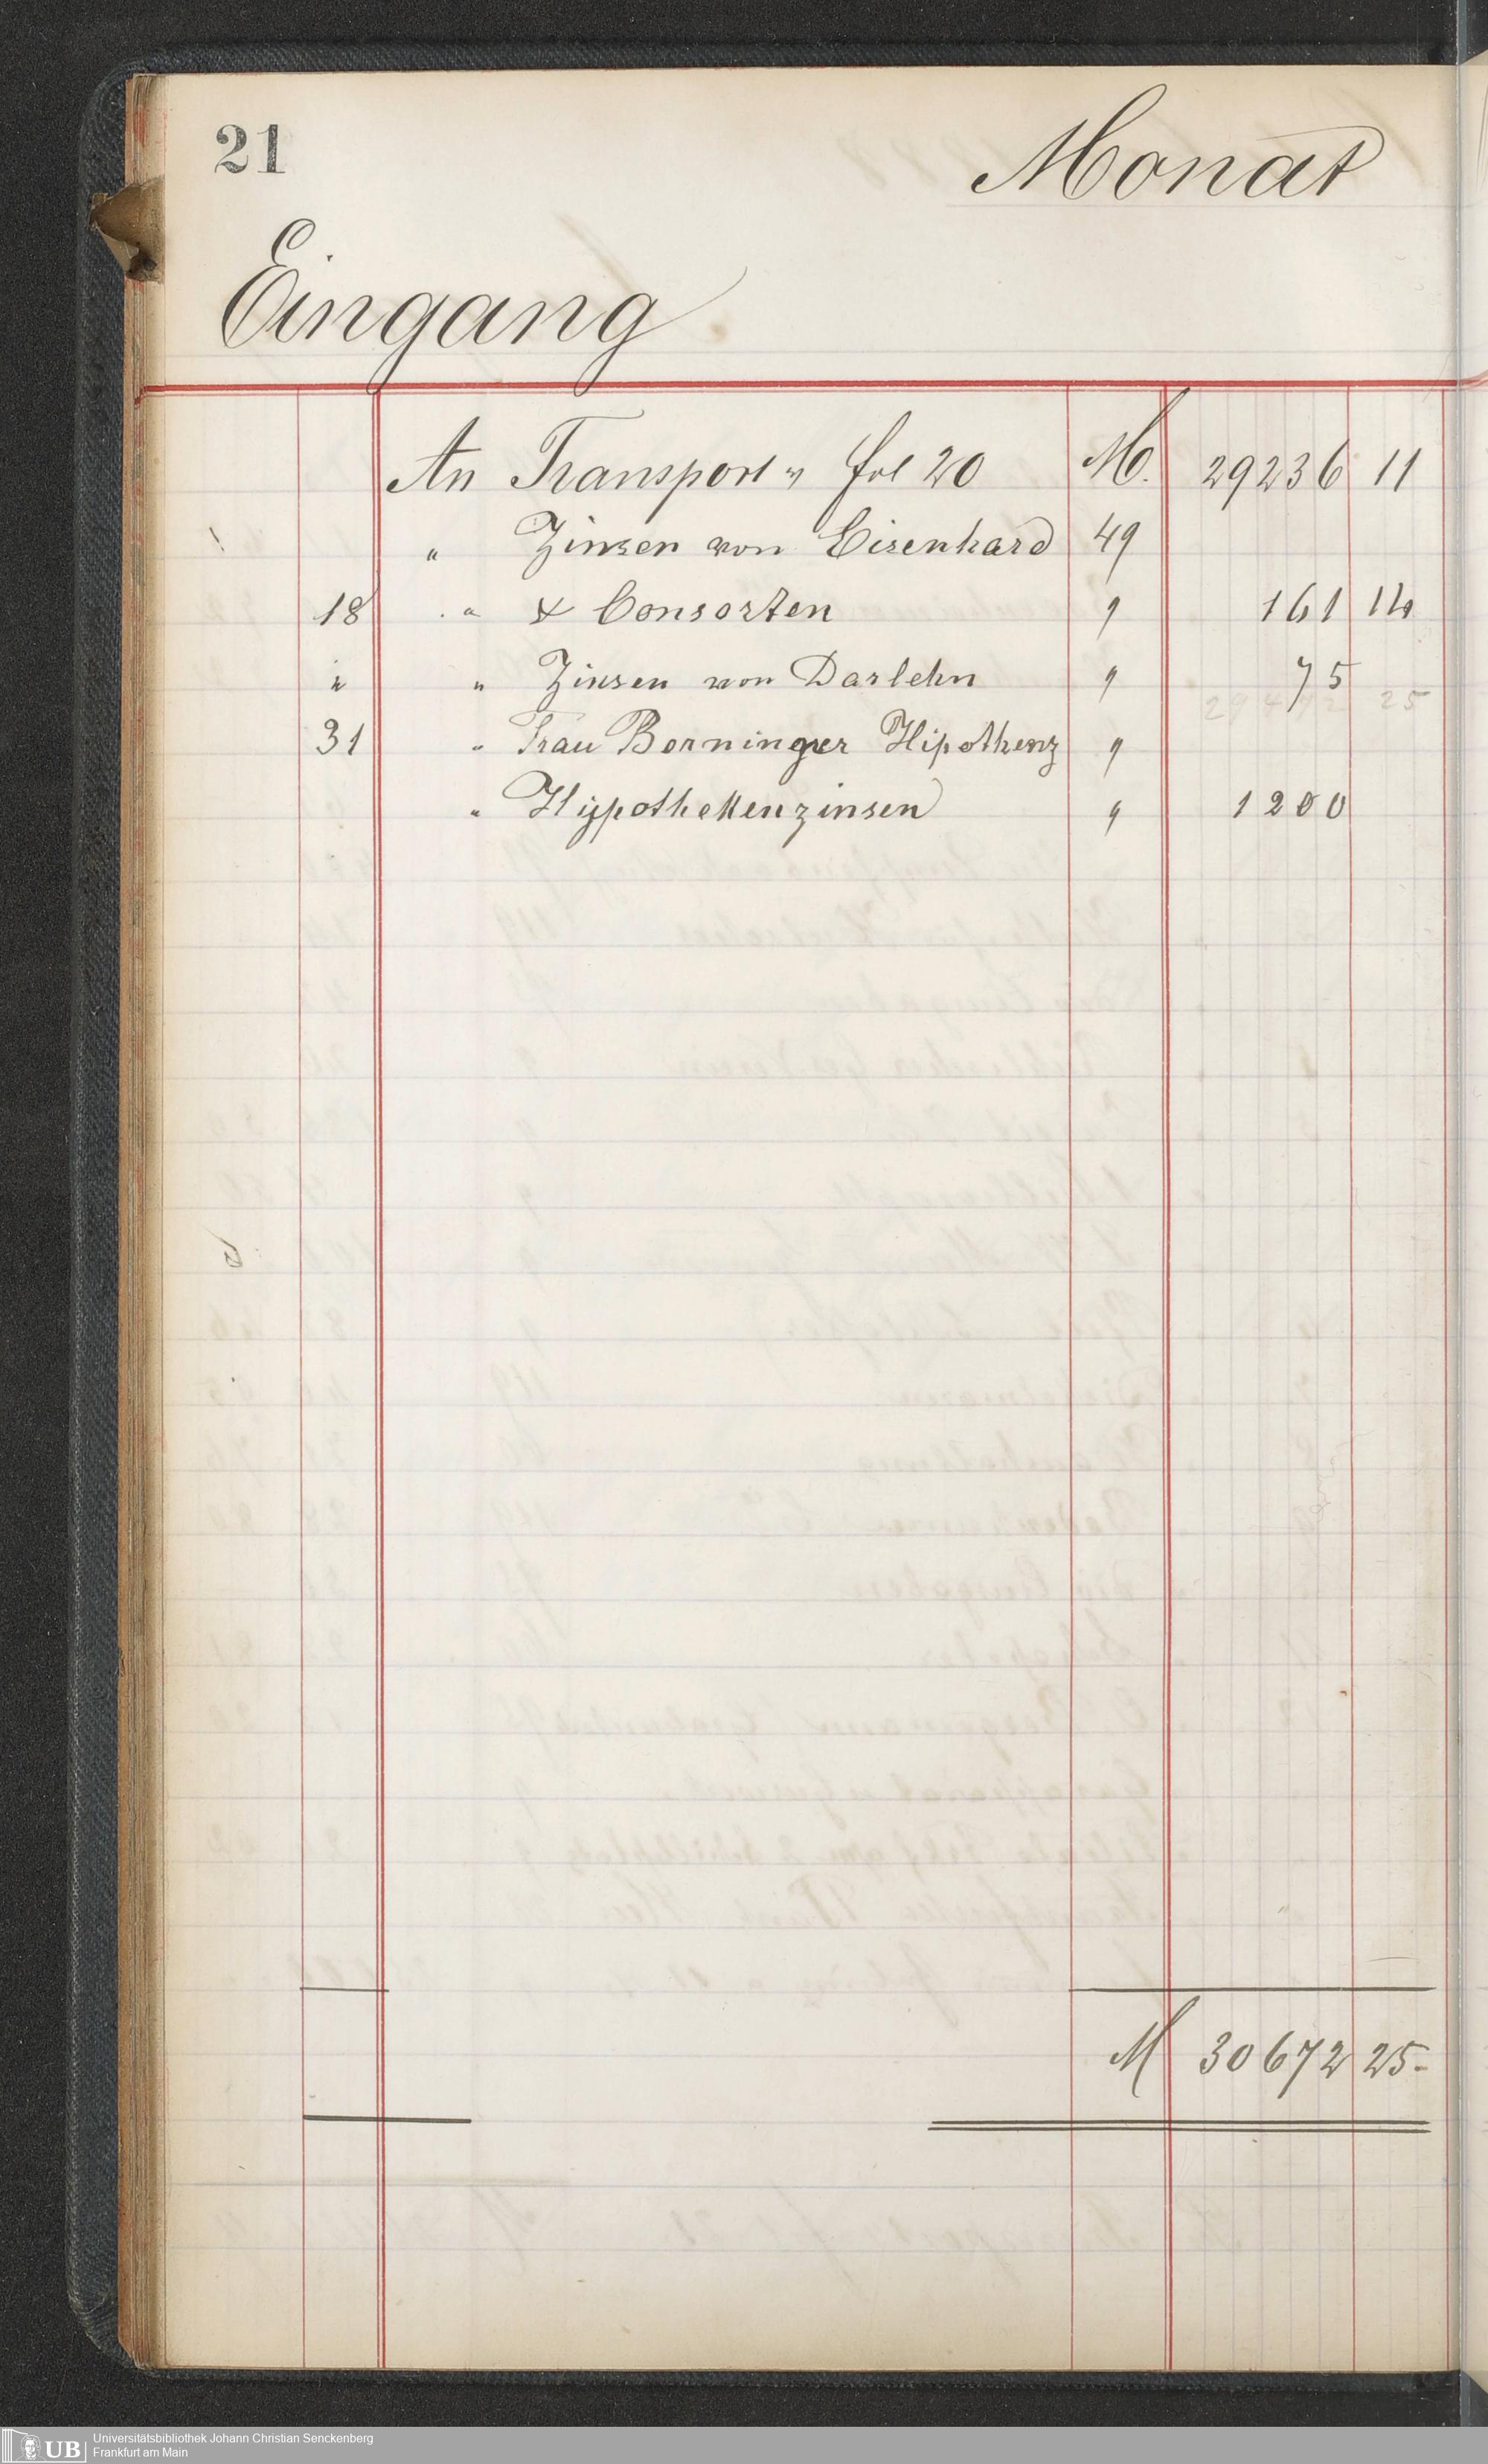 21
Monat
Eingang
An Transport v fol 20 M. 29236 11
" Zinsen von Eisenhard 49
18 " & Consorten " 161 14
" " Zinsen von Darlehn " 75
29472 25
31 " Frau Benninger Hipothenz "
" Hypothekenzinsen " 1200
M 30672 25-
UB
Universitätsbibliothek Johann Christian Senckenberg
Frankfurt am Main